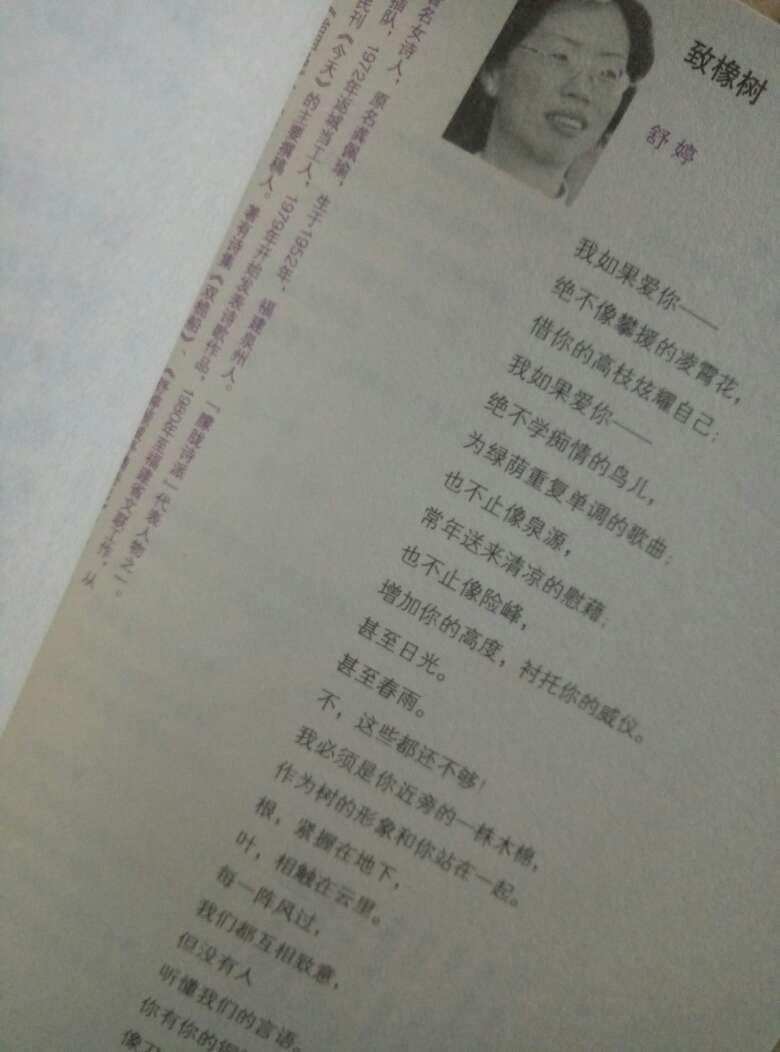 致橡树
舒婷
我如果爱你——
绝不像攀援的凌霄花，
借你的高枝炫耀自己；
我如果爱你——
绝不学痴情的鸟儿，
为绿荫重复单调的歌曲；
也不止像泉源，
常年送来清凉的慰藉；
也不止像险峰，
增加你的高度，衬托你的威仪。
甚至日光。
甚至春雨。
不，这些都还不够！
我必须是你近旁的一株木棉，
作为树的形象和你站在一起。
根，紧握在地下，
叶，相触在云里。
每一阵风过，
我们都互相致意，
但没有人
听懂我们的言语。
你有你的铜
像刀
名女诗人，原名龚佩瑜，生于1952年，福建泉州人。
插队，1972年返城当工人，1979年开始发表诗歌作品，「朦胧诗派」代表人物之一。
民刊《今天》的主要撰稿人。著有诗集《双桅船》、
1980年至福建省文联工作，从